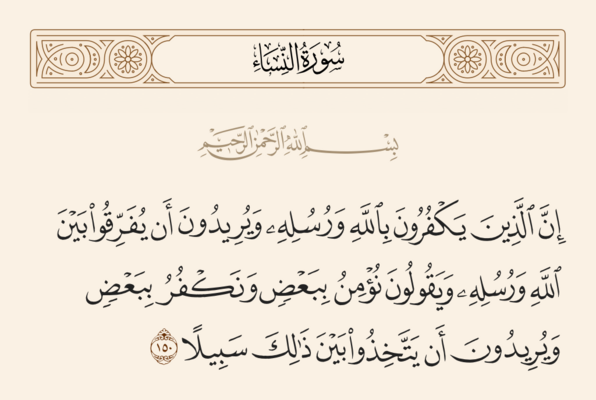 سُورَةُ النِّسَاءِ
بِسْمِ ٱللَّهِ ٱلرَّحْمَٰنِ ٱلرَّحِيمِ
إِنَّ ٱلَّذِينَ يَكْفُرُونَ بِٱللَّهِ وَرُسُلِهِۦ وَيُرِيدُونَ أَن يُفَرِّقُوا۟ بَيْنَ
ٱللَّهِ وَرُسُلِهِۦ وَيَقُولُونَ نُؤْمِنُ بِبَعْضٍ وَنَكْفُرُ بِبَعْضٍ
وَيُرِيدُونَ أَن يَتَّخِذُوا۟ بَيْنَ ذَٰلِكَ سَبِيلًا ١٥٠